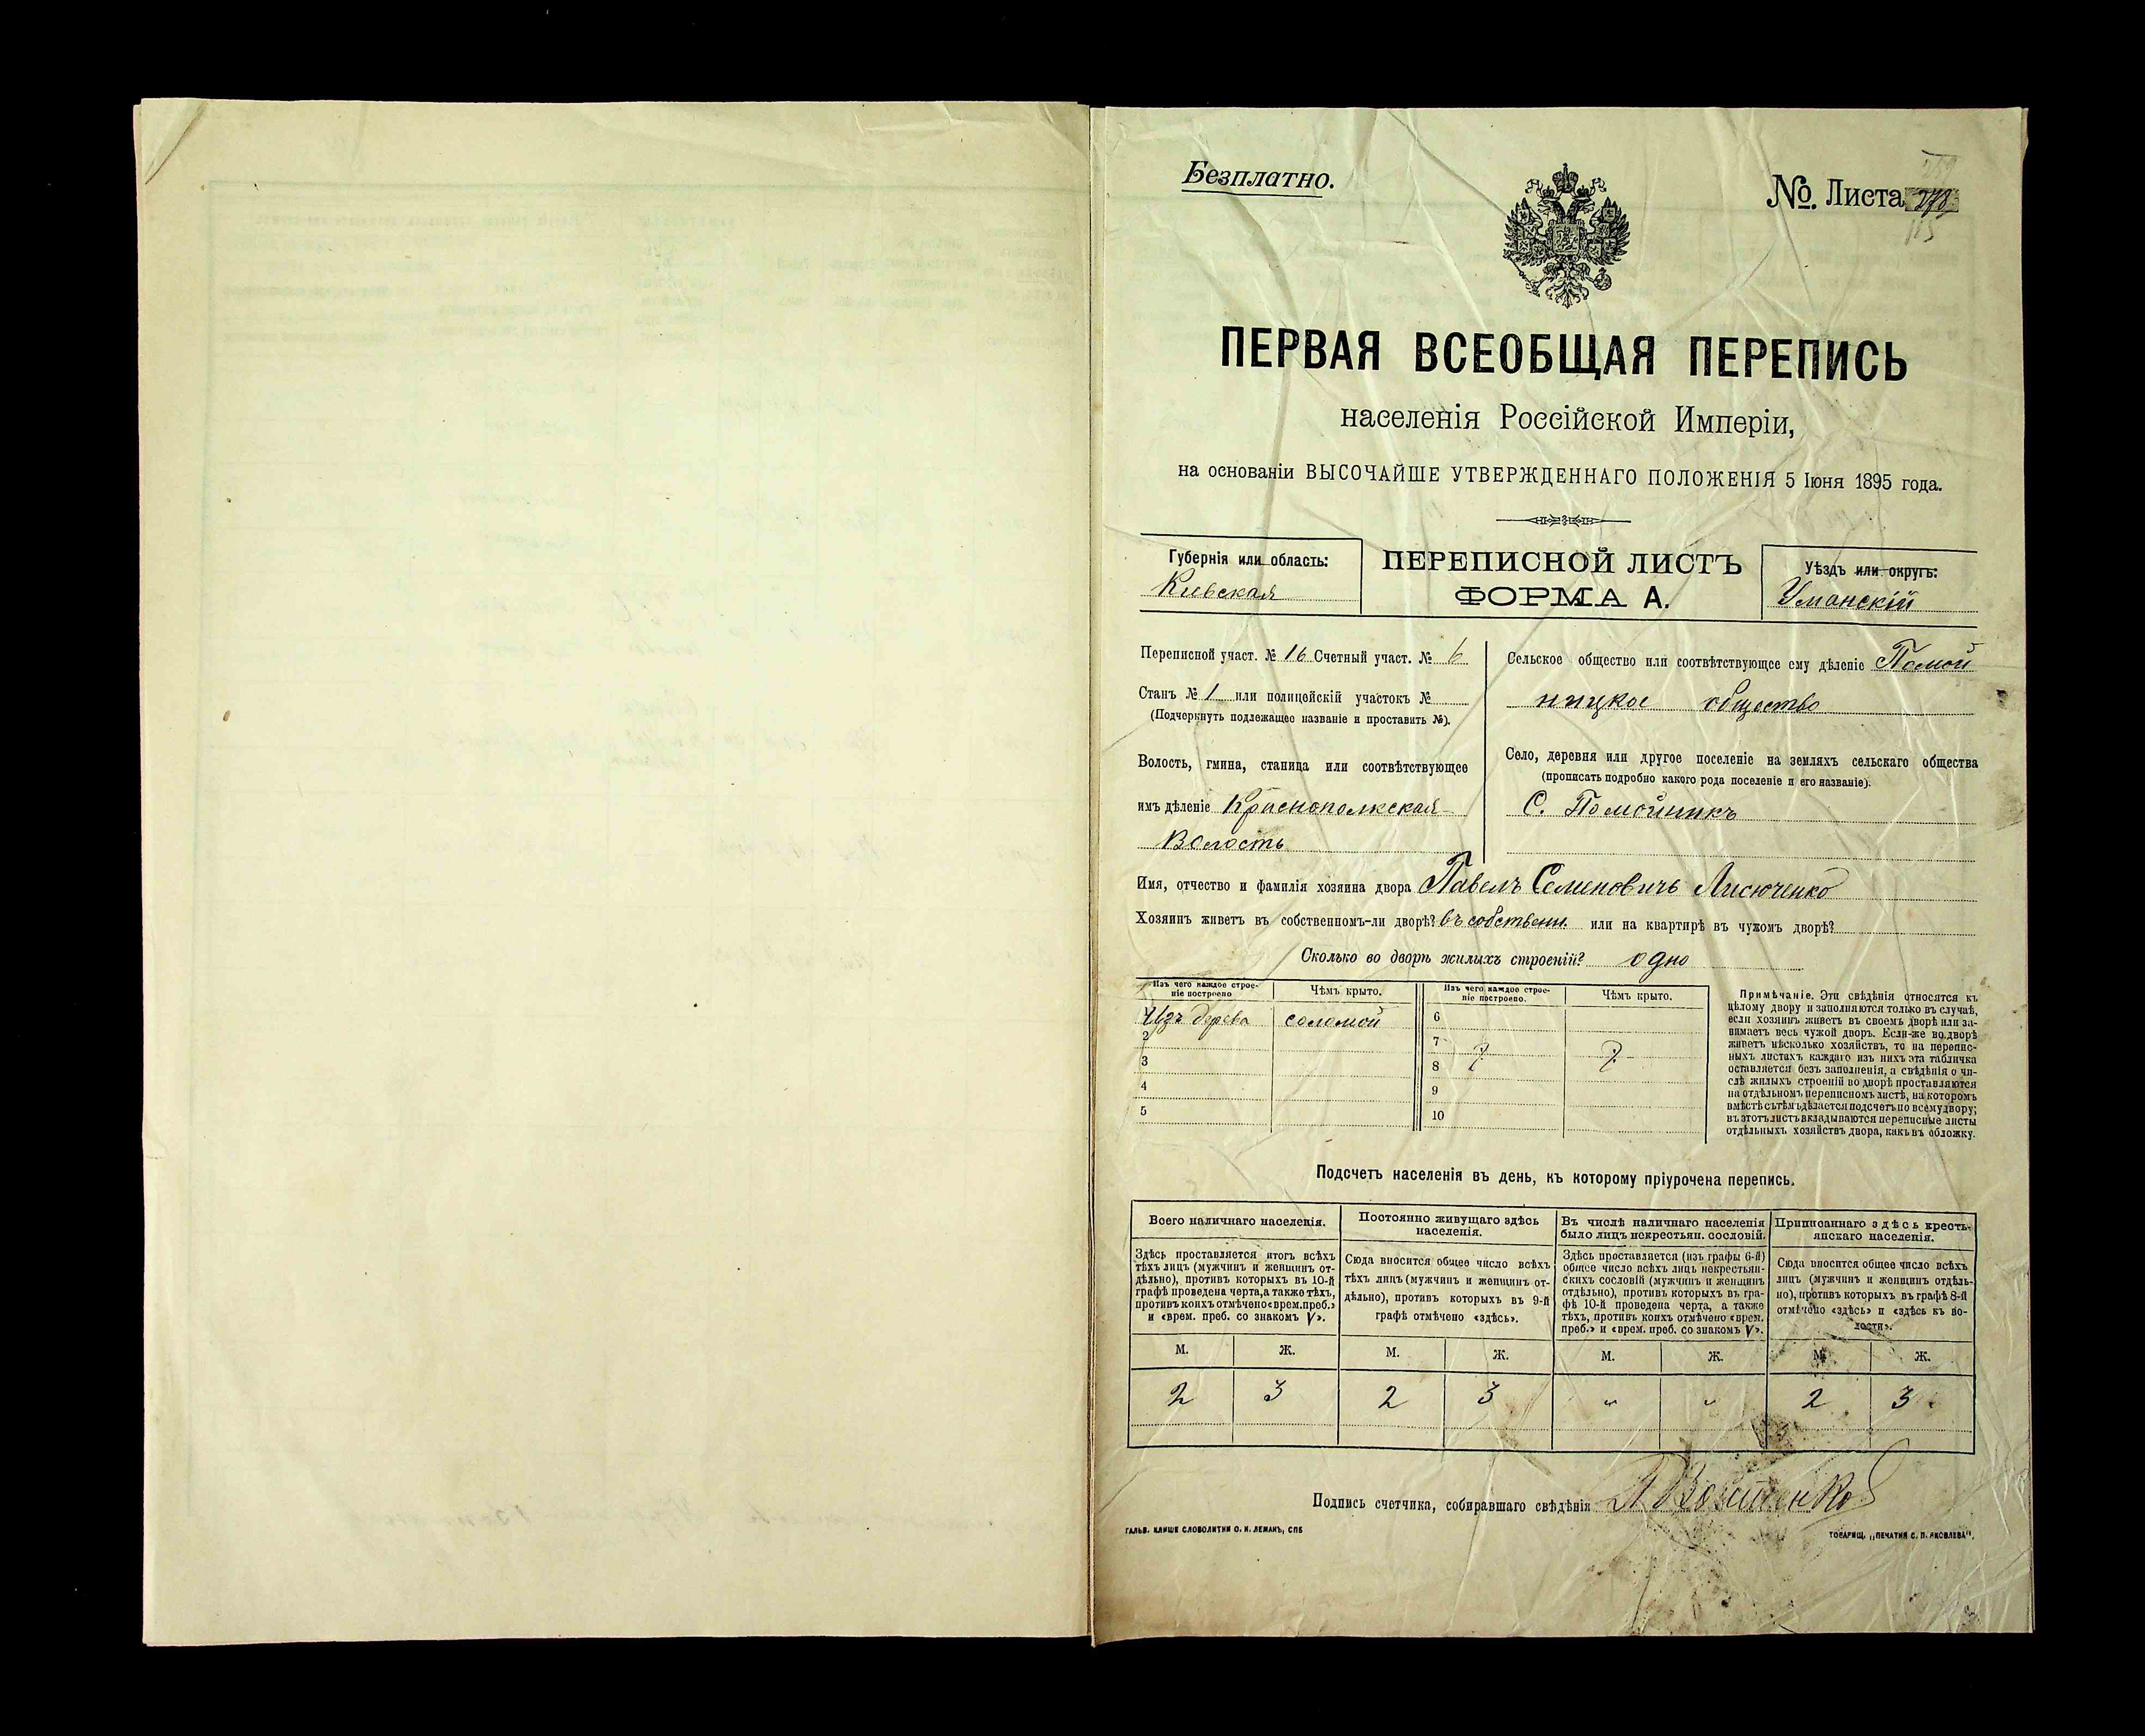 Безплатно.
№. Листа
ПЕРВАЯ ВСЕОБЩАЯ ПЕРЕПИСЬ
населенія Россійской Имперіи,
на основаніи ВЫСОЧАЙШЕ УТВЕРЖДЕННАГО ПОЛОЖЕНІЯ 5 Іюня 1895 года.
Губернія или область:
Кіевская
ПЕРЕПИСНОЙ ЛИСТЪ
ФОРМА А.
Уѣздъ или округъ:
Уманскій
Переписной участ. № 16 Счетный участ. № 6
Станъ № 1 или полицейскій участокъ №
(Подчеркнуть подлежащее названіе и проставить №).
Волость, гмина, станица или соотвѣтствующее
имъ дѣленіе Краснополкская
Волость
Сельское общество или соотвѣтствующее ему дѣленіе Помой
ницкое общество
Село, деревня или другое поселеніе на земляхъ сельскаго общества
(прописать подробно какого рода поселеніе и его названіе).
С. Помойникъ
Имя, отчество и фамилія хозяина двора Павелъ Семеновичъ Лисюченко
Хозяинъ живетъ въ собственномъ-ли дворѣ? въ собственн. или на квартирѣ въ чужомъ дворѣ?
Сколько во дворѣ жилыхъ строеній? одно
Изъ чего каждое строе-
ніе построено
Чѣмъ крыто.
Изъ чего каждое строе-
ніе построено.
Чѣмъ крыто.
1 Изъ дерева соломой
2
3
4
5
6
7
8
9
10
Примѣчаніе. Эти свѣдѣнія относятся къ
цѣлому двору и заполняются только въ случаѣ,
если хозяинъ живетъ въ своемъ дворѣ или за-
нимаетъ весь чужой дворъ. Если-же во дворѣ
живетъ нѣсколько хозяйствъ, то на перепис-
ныхъ листахъ каждаго изъ нихъ эта табличка
оставляется безъ заполненія, а свѣдѣнія о чи-
слѣ жилыхъ строеній во дворѣ проставляются
на отдѣльномъ переписномъ листѣ, на которомъ
вмѣстѣ съ тѣмъ дѣлается подсчетъ по всему двору;
въ этотъ листъ вкладываются переписные листы
отдѣльныхъ хозяйствъ двора, какъ въ обложку.
Подсчетъ населенія въ день, къ которому пріурочена перепись.
Всего наличнаго населенія.
Здѣсь проставляется итогъ всѣхъ
тѣхъ лицъ (мужчинъ и женщинъ от-
дѣльно), противъ которыхъ въ 10-й
графѣ проведена черта, а также тѣхъ,
противъ коихъ отмѣчено «врем. преб.»
и «врем. преб. со знакомъ V».
Постоянно живущаго здѣсь
населенія.
Сюда вносится общее число всѣхъ
тѣхъ лицъ (мужчинъ и женщинъ от-
дѣльно), противъ которыхъ въ 9-й
графѣ отмѣчено «здѣсь».
Въ числѣ наличнаго населенія
было лицъ некрестьян. сословій.
Здѣсь проставляется (изъ графы 6-й)
общее число всѣхъ лицъ некрестьян-
скихъ сословій (мужчинъ и женщинъ
отдѣльно), противъ которыхъ въ гра-
фѣ 10-й проведена черта, а также
тѣхъ, противъ коихъ отмѣчено «врем.
преб.» и «врем. преб. со знакомъ V».
Приписаннаго здѣсь кресть-
янскаго населенія.
Сюда вносится общее число всѣхъ
лицъ (мужчинъ и женщинъ отдѣль-
но), противъ которыхъ въ графѣ 8-й
отмѣчено «здѣсь» и «здѣсь къ во-
лости».
М. Ж. М. Ж. М. Ж. М. Ж.
2 3 2 3 " " 2 3
Подпись счетчика, собиравшаго свѣдѣнія
ГАЛЬВ. КЛИШЕ СЛОВОЛИТНИ О. И. ЛЕМАНЪ, СПБ
ТОВАРИЩ. „ПЕЧАТНЯ С. П. ЯКОВЛЕВА".